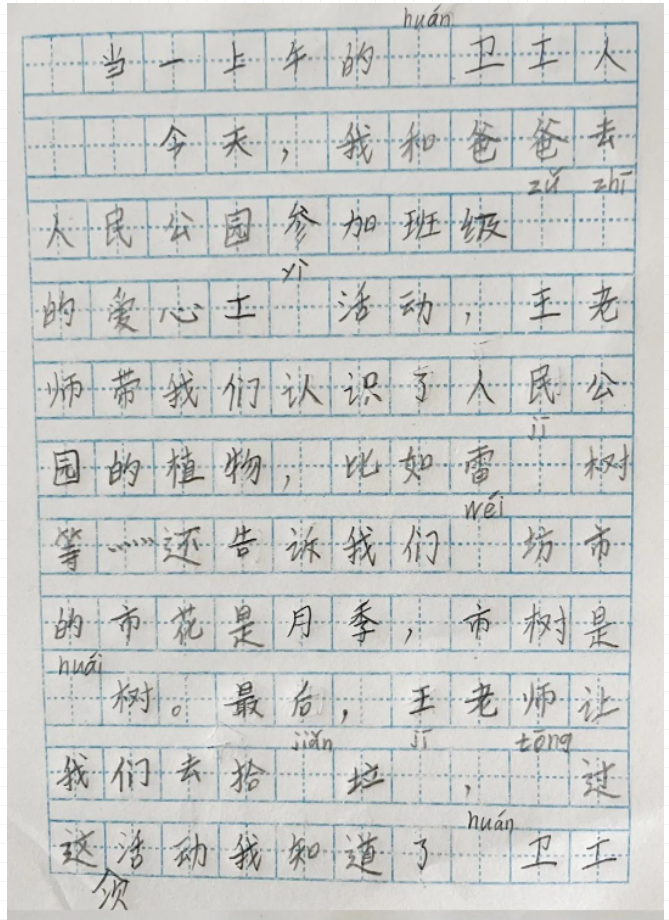 huán
当一上午的 卫工人
今天，我和爸爸去
zǔ zhī
人民公园参加班级
yì
的爱心工 活动，王老
师带我们认识了人民公
jī
园的植物，比如雷 树
wéi
等……还告诉我们 坊市
的市花是月季，市树是
huái
树。最后，王老师让
jiǎn jī tōng
我们去拾 垃 ， 过
huán
这活动我知道了 卫工
须